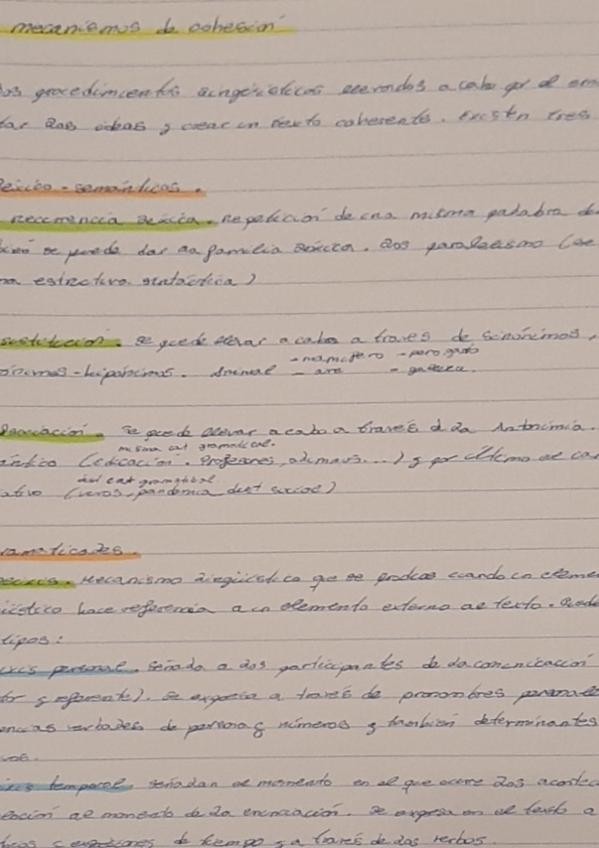 mecanismos de cohesión
los procedimientos lingüísticos llevados a cabo por el em
tar las ideas y crear un texto coherente. Existen tres
léxico-semánticos.
recurrencia léxica. Repetición de una misma palabra de
bién se puede dar la familia léxica. Los paralelismo (se
na estructura sintáctica)
sustitución. Se puede llevar a cabo a través de sinónimos,
-mamífero -perro, gato
ónimos-hipónimos. Animal - ave - gallina.
Asociación. Se puede llevar a cabo a través d la Antonimia.
misma cat gramatical.
ántico (educación. Profesores, alumnos...) y por último el ca
dist cat gramatical
ativo (virus, pandemia, dist social)
ramaticales.
Deixis. Mecanismo lingüístico que se produce cuando un eleme
üístico hace referencia a un elemento externo al texto. Puede
tipos:
ixis personal. Señala a los participantes de la comunicación
tor y referente). Se expresa a través de pronombres personal
encias verbales de persona y número y también determinantes
vos.
ixis temporal señalan el momento en el que ocurre los acontec
elación al momento de la enunciación. Se expresa en el texto a
bios y expresiones de tiempo y a través de los verbos.